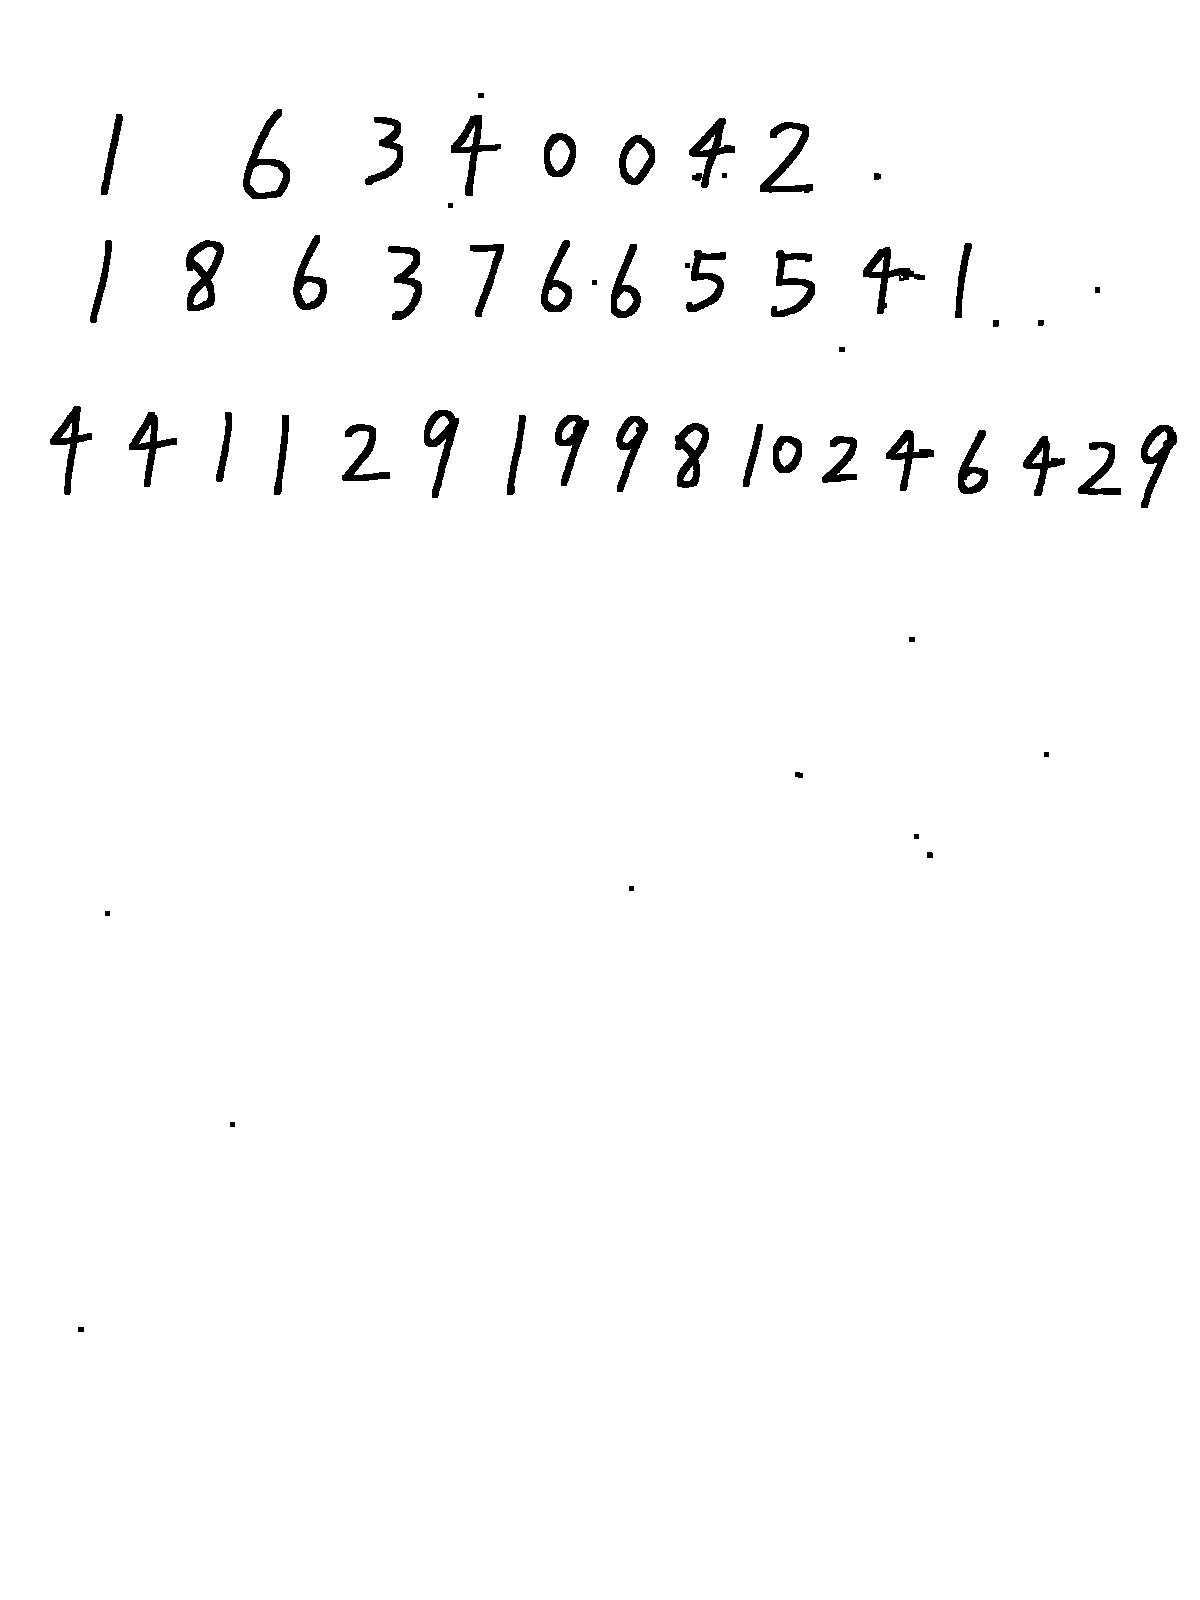 16340042
18637665541
441129199810246429